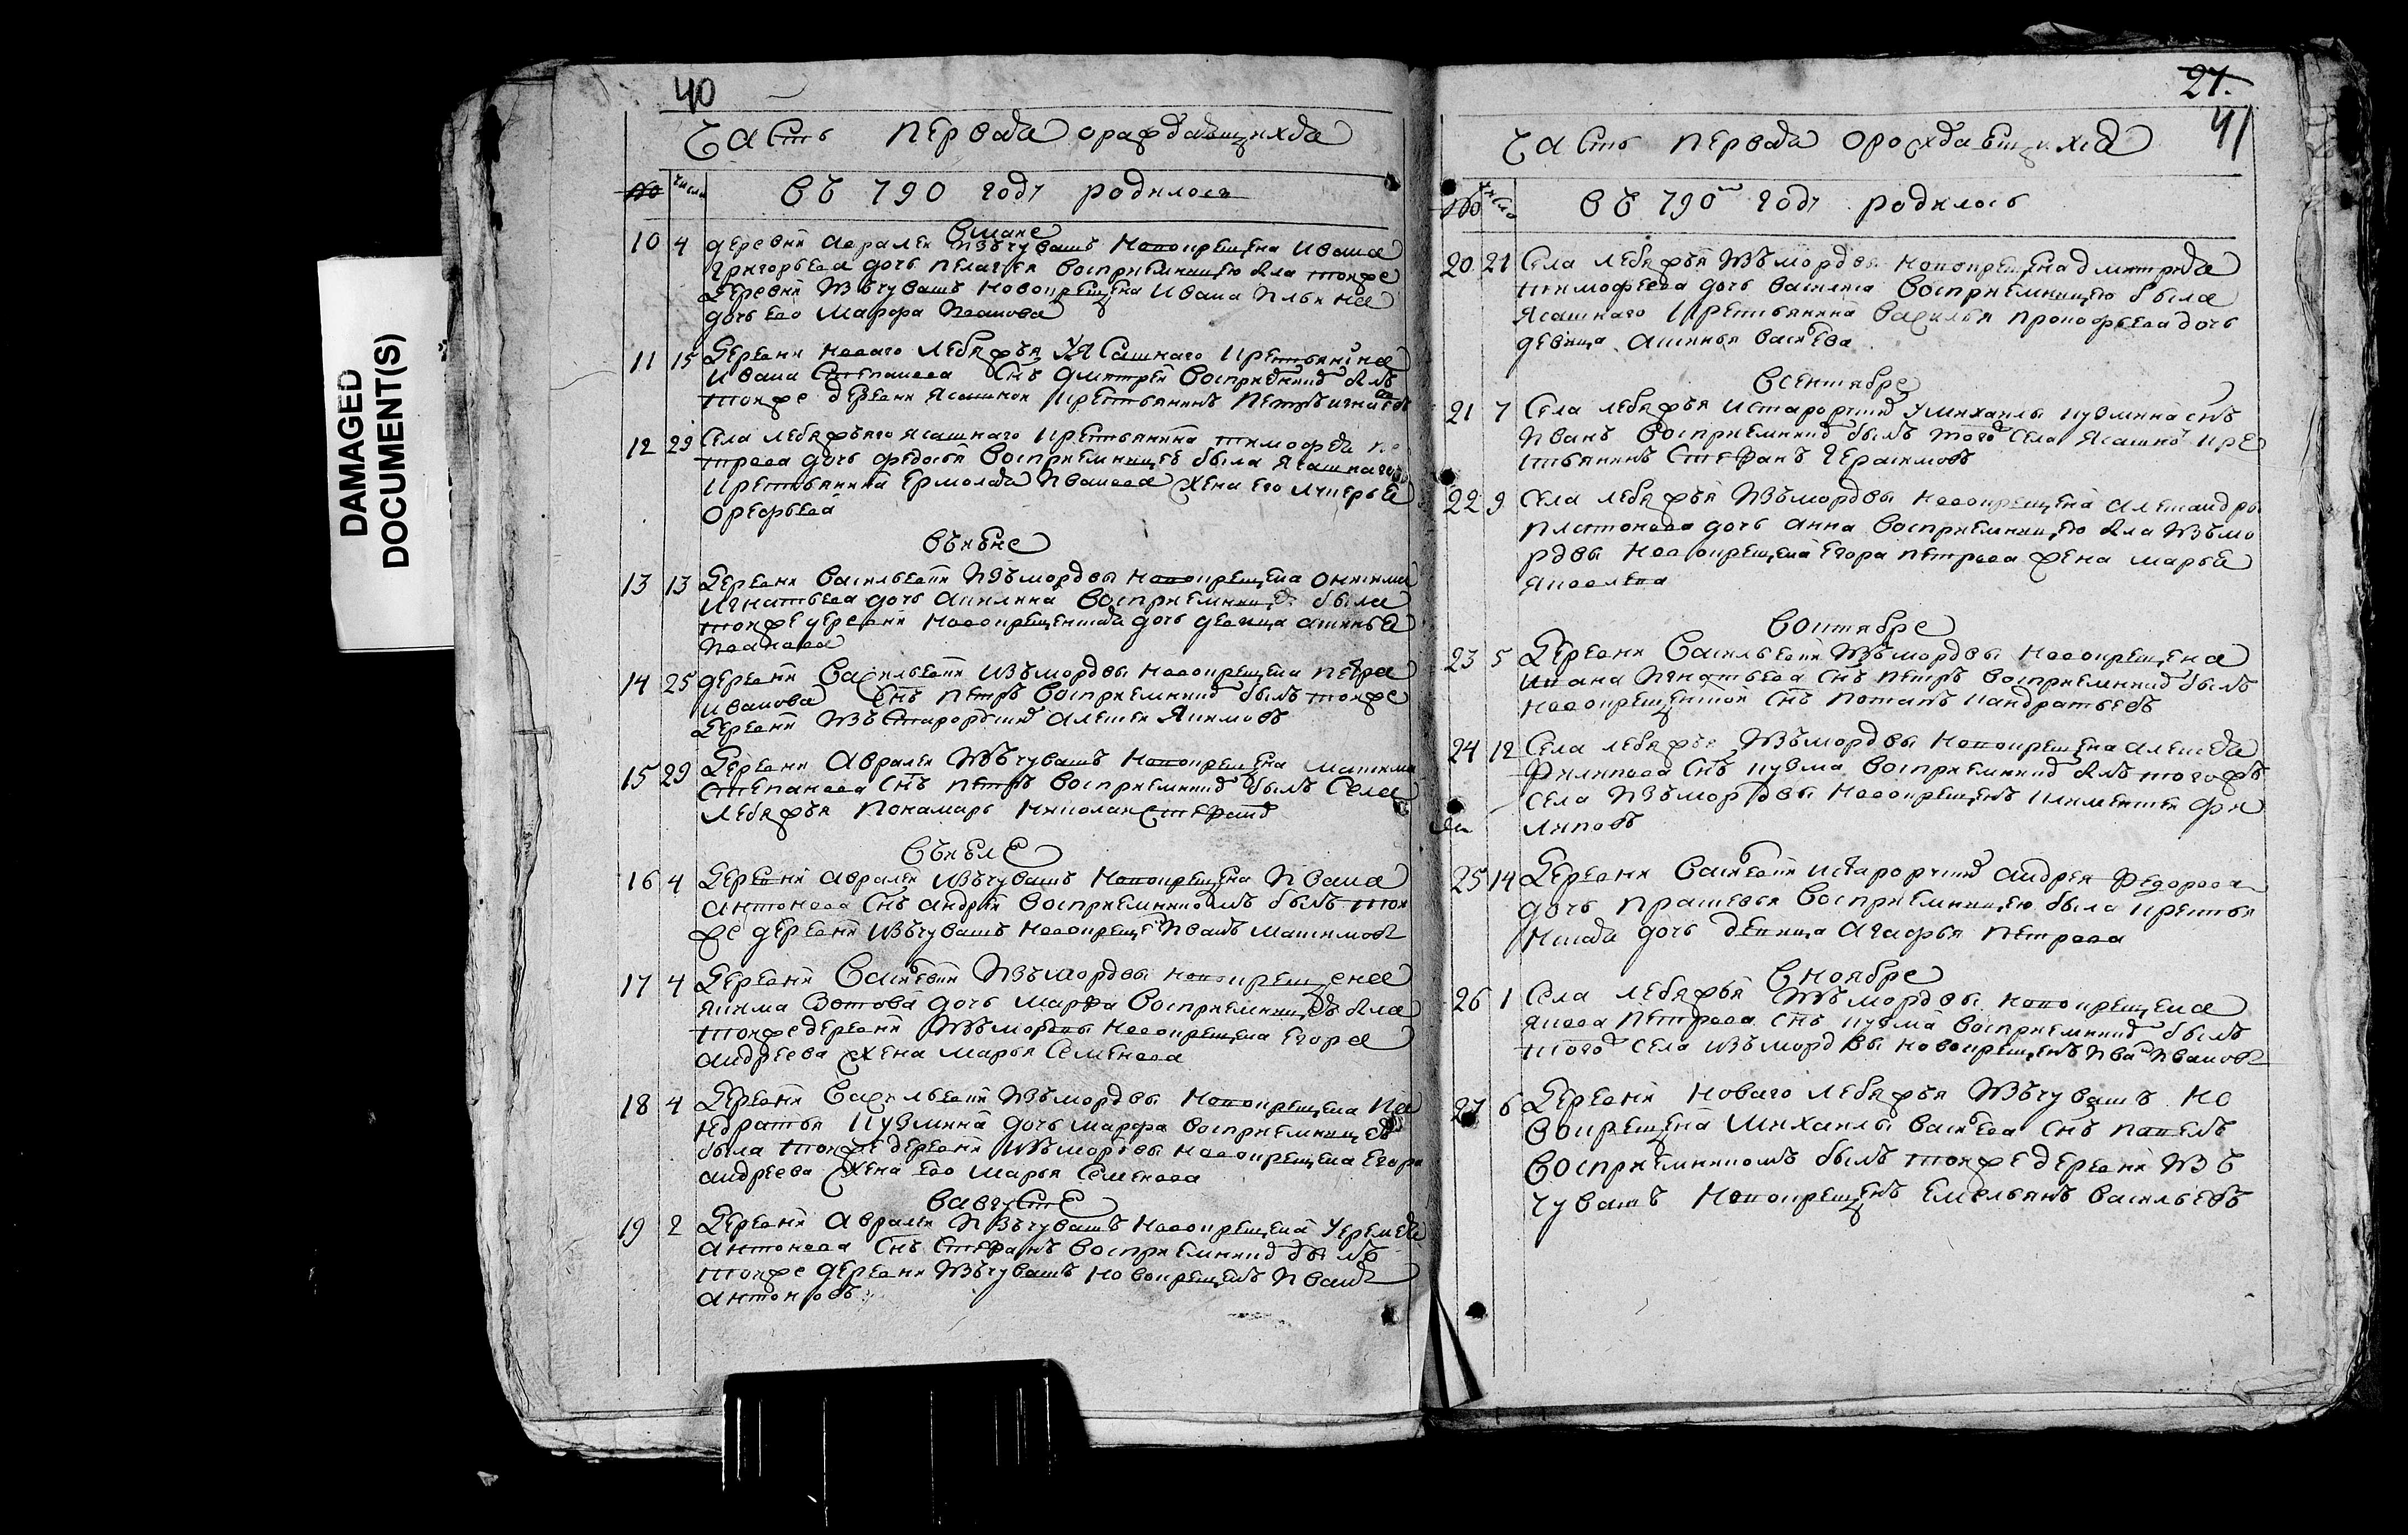 DAMAGED
DOCUMENT(S)
40
Часть первая ораждающихся
№ число въ 790 годѣ родилось
Вмаие
10 4 деревни авралеи изъчувашъ новокрещена Ивана
Григорьева дочь пелагея восприемницею была тоиже
деревни изъчувашъ новокрещена Ивана
дочь ево Марфа Иванова
11 15 деревни новаго Лебяжья уясашнаго крестьянина
ивана степанова снъ дмитреи восприемникъ былъ
тоиже деревни ясашнои крестьянинъ петръ
12 29 села лебяжьяго ясашнаго крестьянина тимофея пе
трова дочь федосья восприемницеѣ была ясашнаго
крестьянина ермолая Иванова жена его лукерья
орефьева
въиюне
13 13 деревни васильевки изъмордвы новокрещена онисима
игнатьева дочь акилина восприемницею была
тоиже деревни новокрещенская дочь девица аксинья
Иванова
14 25 деревни васильевки изъмордвы новокрещена петра
иванова снъ петръ восприемникъ былъ тоиже
деревни изъ алексеи якимовъ
15 29 деревни авралеи изъчувашъ новокрещена максима
степанова снъ петръ восприемникъ былъ села
лебяжья понамарь николаи стефановъ
въиюле
16 4 деревни авралеи изъчувашъ новокрещена Ивана
антонова снъ андреи восприемникомъ былъ тои
же деревни изъчувашъ новокрещенъ Иванъ максимовъ
17 4 деревни васильевки изъмордвы новокрещена
якима зотова дочь марфа восприемницеѣ была
тоиже деревни изъмордвы новокрещена егора
андреева жена марья семенова
18 4 деревни васильевки изъмордвы новокрещена ка
ндратья кузмина дочь марфа восприемницею
была тоиже деревни изъмордвы новокрещена егора
андреева жена ево марья семенова
вавгусте
19 2 деревни авралеи изъчувашъ новокрещена уеремея
антонова снъ стефанъ восприемникъ былъ
тоиже деревни изъчувашъ новокрещенъ Иванъ
антоновъ
27.
41
Часть первая орождающихся
№ число въ 790м годѣ родилось
20 21 села лебяжья изъмордвы новокрещена дмитрия
тимофеева дочь василиса восприемницею была
ясашнаго крестьянина василья прокофьева дочь
девица аксинья васильева
всентябре
21 7 села лебяжья умихаилы кузмина снъ
иванъ восприемникъ былъ тогоже села ясашной кре
стьянинъ стефанъ герасимовъ
22 9 села лебяжья изъмордвы новокрещена александры
платонова дочь анна восприемницею была изъмо
рдвы новокрещена егора петрова жена марья
яковлева
воктябре
23 5 деревни васильевки изъмордвы новокрещена
ивана игнатьева снъ петръ восприемникъ былъ
новокрещенскои снъ потапъ кандратьевъ
24 12 села лебяжья изъмордвы новокрещена алексея
филипова снъ кузма восприемникъ былъ тогожъ
села изъмордвы новокрещенъ климентеи фи
липовъ
25 14 деревни васильевки андрея федорова
дочь прасковья восприемницею была крестья
нская дочь девица агафья петрова
вноябре
26 1 села лебяжья изъмордвы новокрещена
якова петрова снъ кузма восприемникъ былъ
тогоже села изъмордвы новокрещенъ иванъ ивановъ
27 6 деревни новаго лебяжья изъчувашъ но
вокрещена михаилы васильева снъ павелъ
восприемникомъ былъ тоиже деревни изъ
чувашъ новокрещенъ емельянъ васильевъ